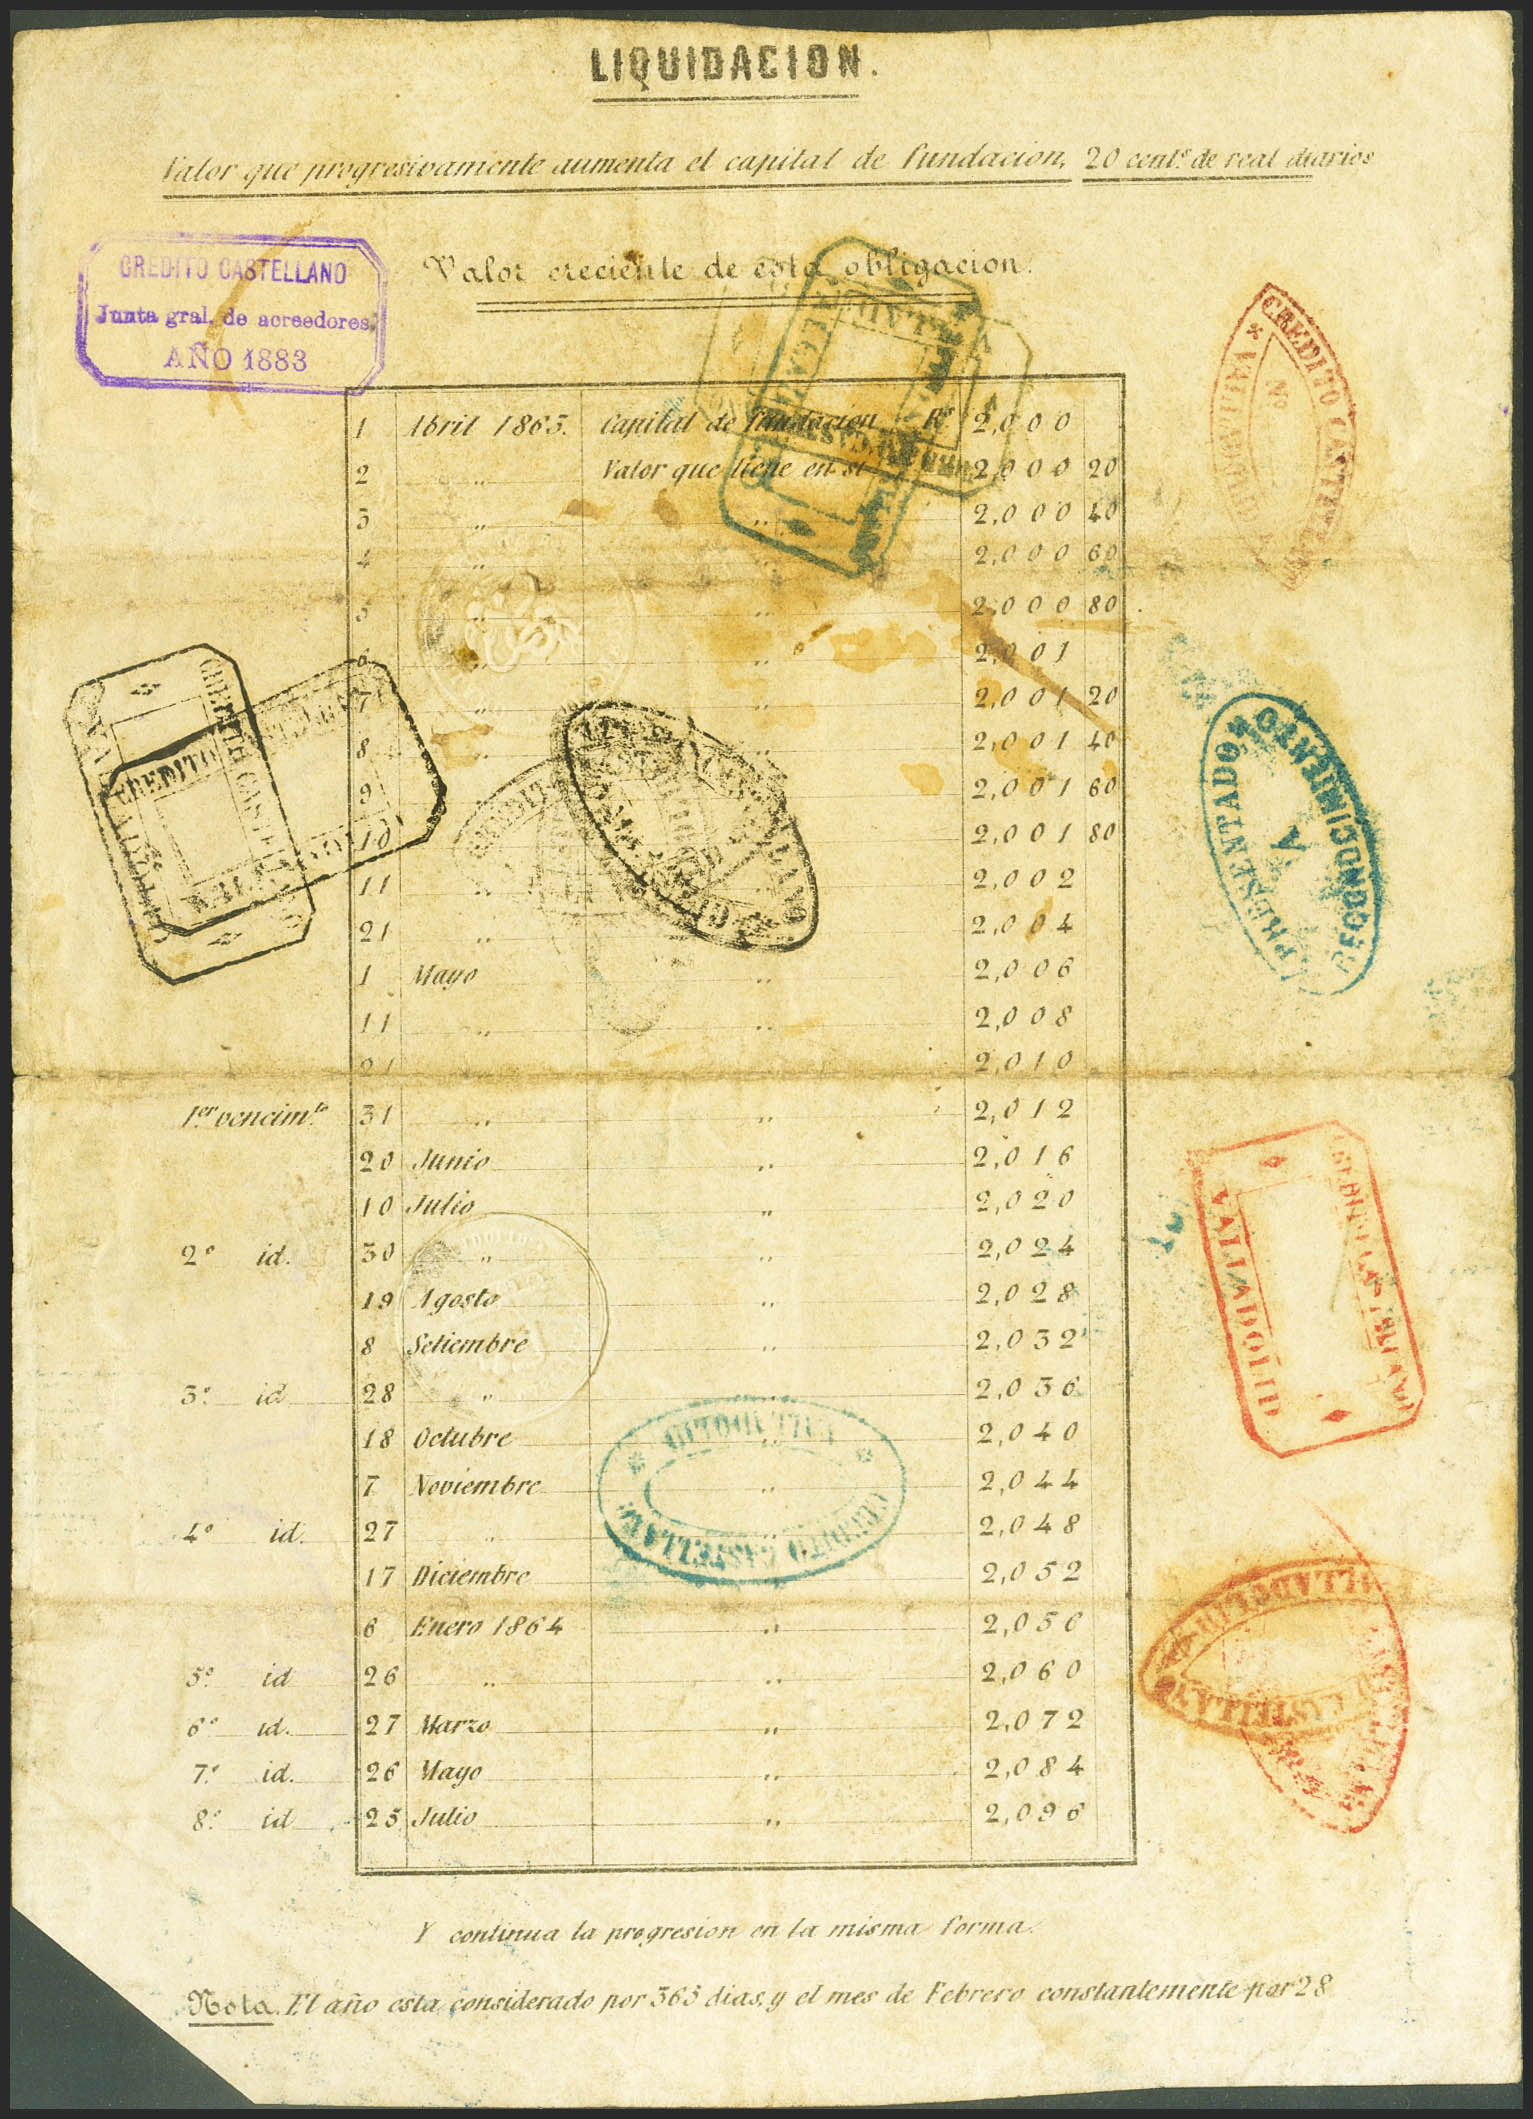 LIQUIDACION.
Valor que progresivamente aumenta el capital de fundacion, 20 cents. de real diarios
CREDITO CASTELLANO
Junta gral. de acreedores.
AÑO 1883
Valor creciente de esta obligacion.
1 Abril 1863. Capital de fundacion Rs. 2,000
2 " Valor que tiene en si 2,000 20
3 " " 2,000 40
4 " " 2,000 60
5 " " 2,000 80
6 " " 2,001
7 " " 2,001 20
8 " " 2,001 40
9 2,001 60
10 2,001 80
11 " " 2,002
21 " 2,004
1 Mayo " 2,006
11 " " 2,008
21 " 2,010
1er vencimto. 31 " " 2,012
20 Junio " 2,016
10 Julio " 2,020
2º id. 30 " " 2,024
19 Agosto " 2,028
8 Setiembre " 2,032
3º id 28 " " 2,036
18 Octubre " 2,040
7 Noviembre " 2,044
4º id. 27 " " 2,048
17 Diciembre 2,052
6 Enero 1864 " 2,056
5º id 26 " " 2,060
6º id. 27 Marzo " 2,072
7º id. 26 Mayo " 2,084
8º id 25 Julio " 2,096
Y continua la progresion en la misma forma.
Nota. El año esta considerado por 365 dias, y el mes de Febrero constantemente por 28
CREDITO CASTELLANO
VALLADOLID
Nº
PRESENTADO
A
RECONOCIMIENTO
VALLADOLID
CREDITO CASTELLANO
VALLADOLID
CREDITO CASTELLANO
VALLADOLID
CASTELLANO
CREDITO CASTELLANO
CREDITO